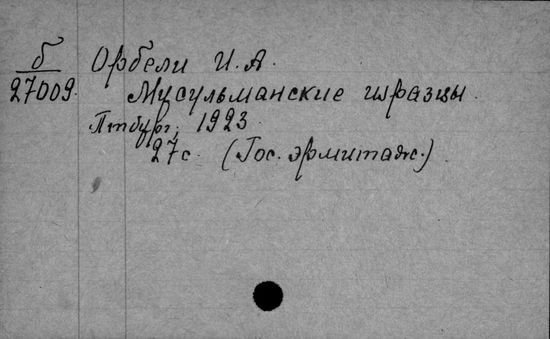 б
27009
Орбели И. А.
Мусульманские изразцы.
Птбург, 1923
27 с. (Гос. эрмитаж.)